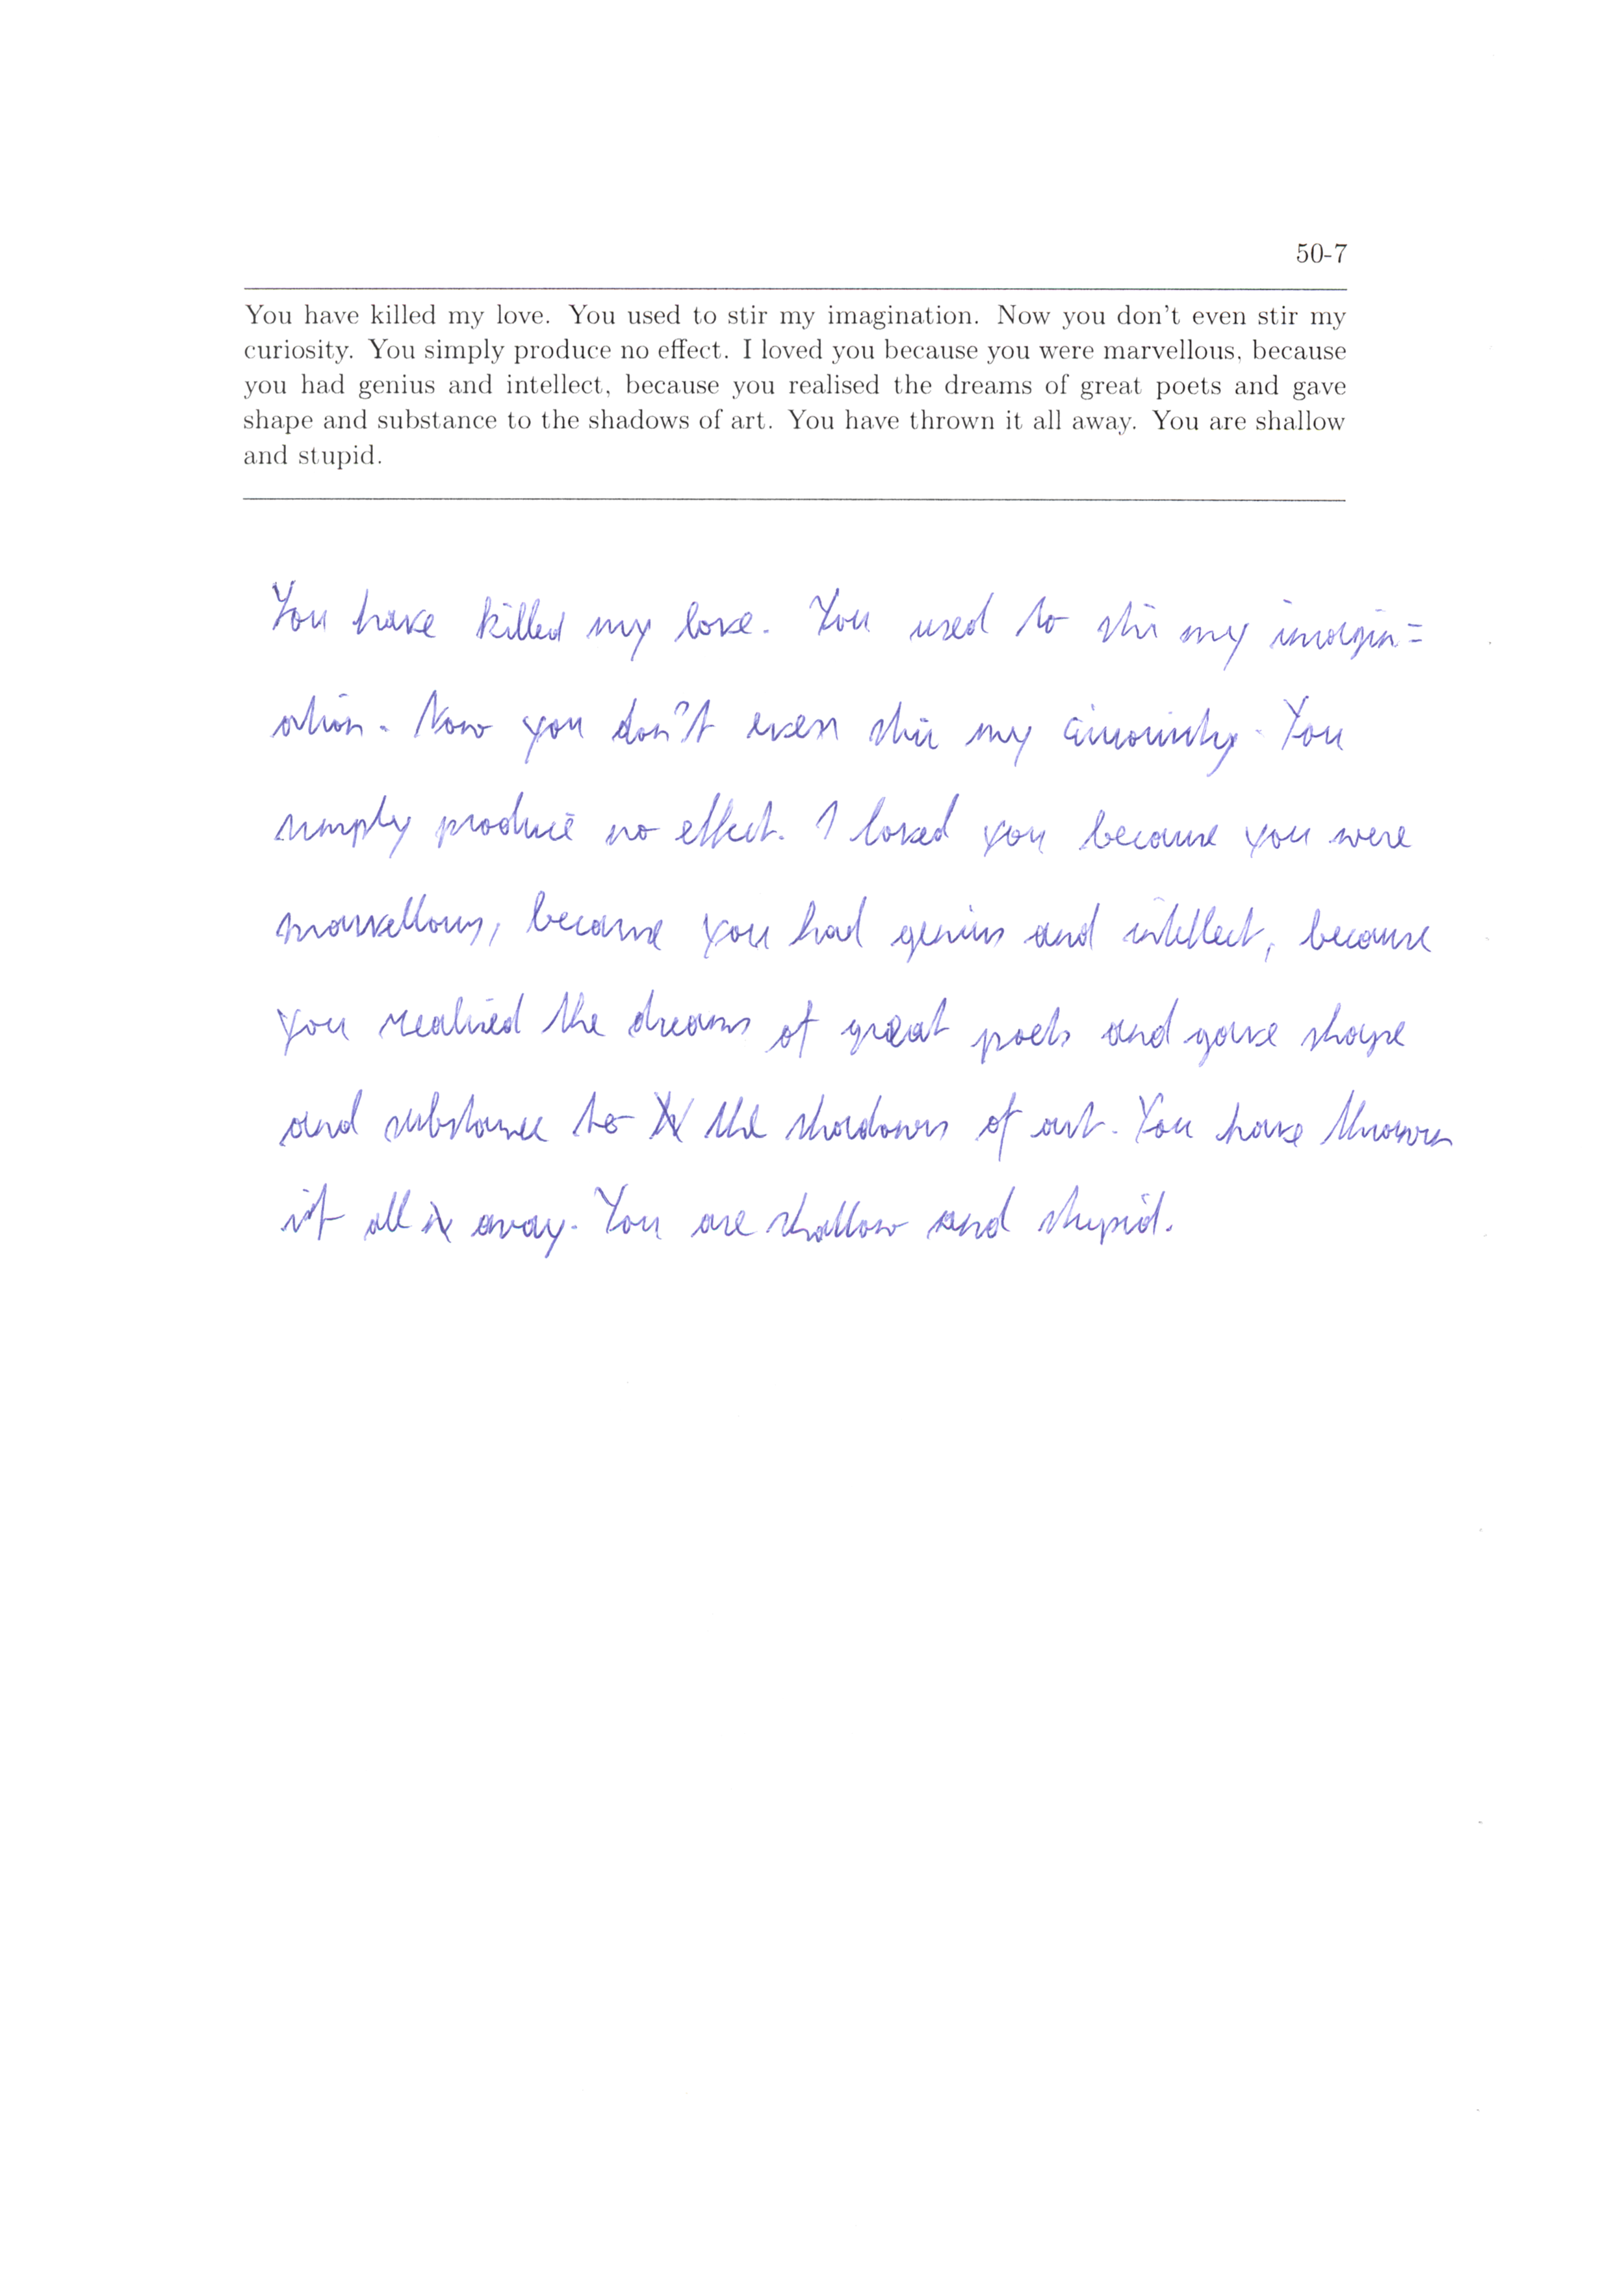 50-7
You have killed my love. You used to stir my imagination. Now you don't even stir my
curiosity. You simply produce no effect. I loved you because you were marvellous, because
you had genius and intellect, because you realised the dreams of great poets and gave
shape and substance to the shadows of art. You have thrown it all away. You are shallow
and stupid.
You have killed my love. You used to stir my imagin=
ation. Now you don't even stir my curiosity. You
simply produce no effect. I loved you because you were
marvellous, because you had genius and intellect, because
you realised the dreams of great poets and gave shape
and substance to the shadows of art. You have thrown
it all away. You are shallow and stupid.